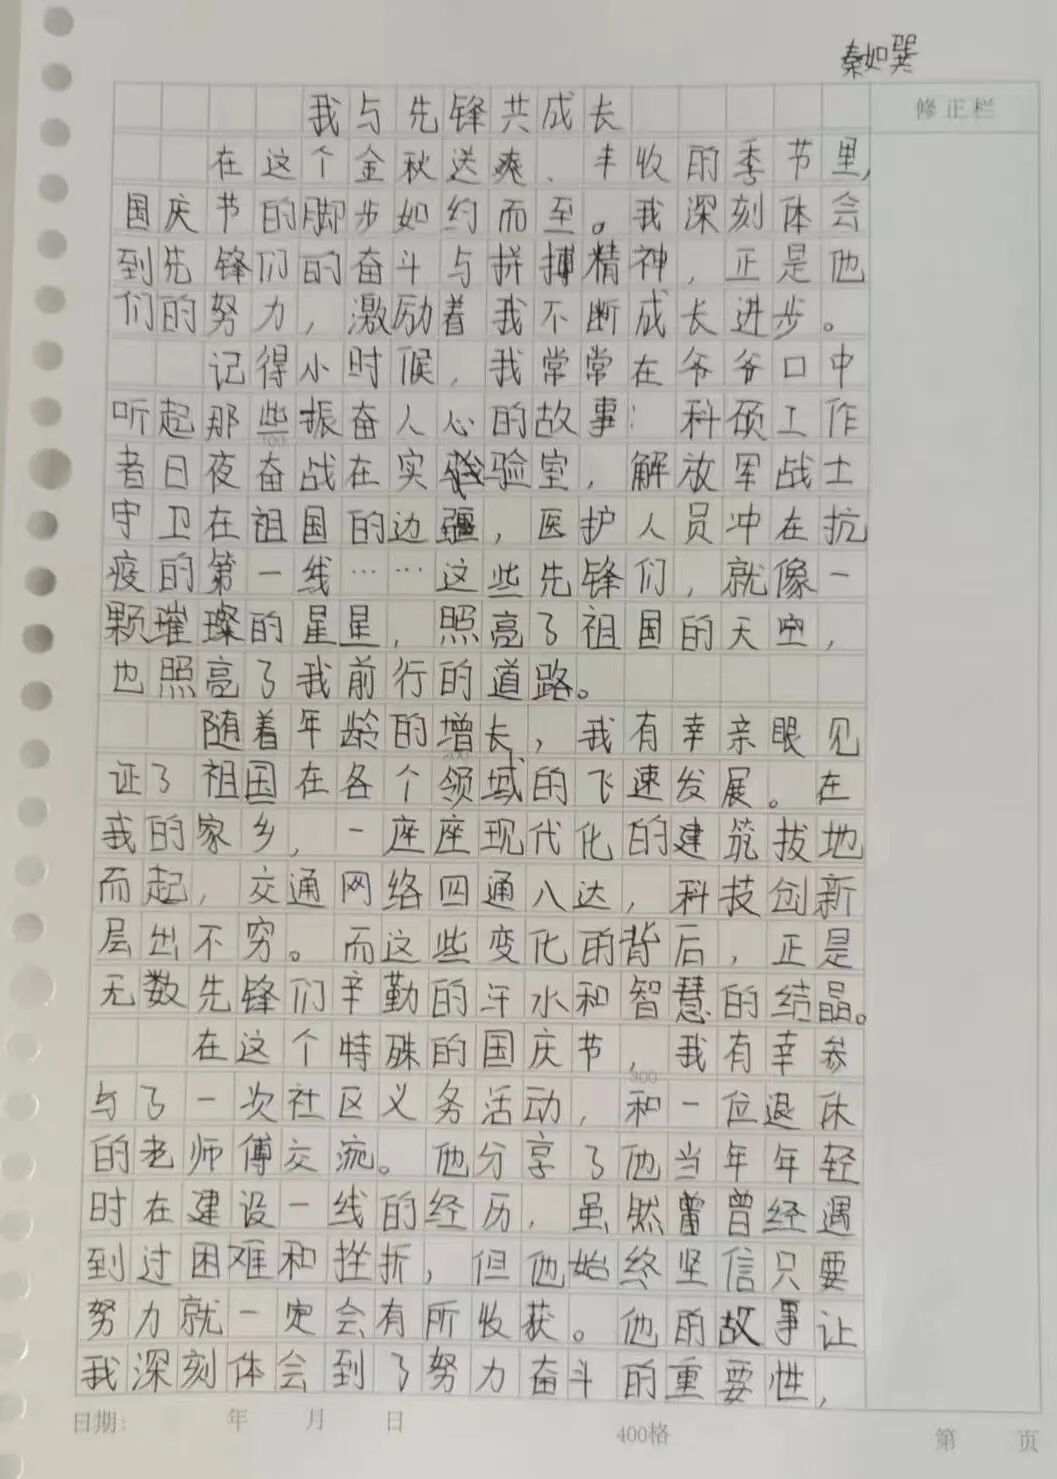 秦如巽
修正栏
我与先锋共成长
在这个金秋送爽、丰收的季节里,
国庆节的脚步如约而至。我深刻体会
到先锋们的奋斗与拼搏精神,正是他
们的努力,激励着我不断成长进步。
记得小时候,我常常在爷爷口中
听起那些振奋人心的故事:科硕工作
100
者日夜奋战在实验室,解放军战士
守卫在祖国的边疆,医护人员冲在抗
疫的第一线……这些先锋们,就像一
颗璀璨的星星,照亮了祖国的天空,
也照亮了我前行的道路。
随着年龄的增长,我有幸亲眼见
200
证了祖国在各个领域的飞速发展。在
我的家乡,一座座现代化的建筑拔地
而起,交通网络四通八达,科技创新
层出不穷。而这些变化的背后,正是
无数先锋们辛勤的汗水和智慧的结晶。
在这个特殊的国庆节,我有幸参
300
与了一次社区义务活动,和一位退休
的老师傅交流。他分享了他当年年轻
时在建设一线的经历,虽然曾曾经遇
到过困难和挫折,但他始终坚信只要
努力就一定会有所收获。他的故事让
我深刻体会到了努力奋斗的重要性,
日期: 年 月 日 400格 第 页